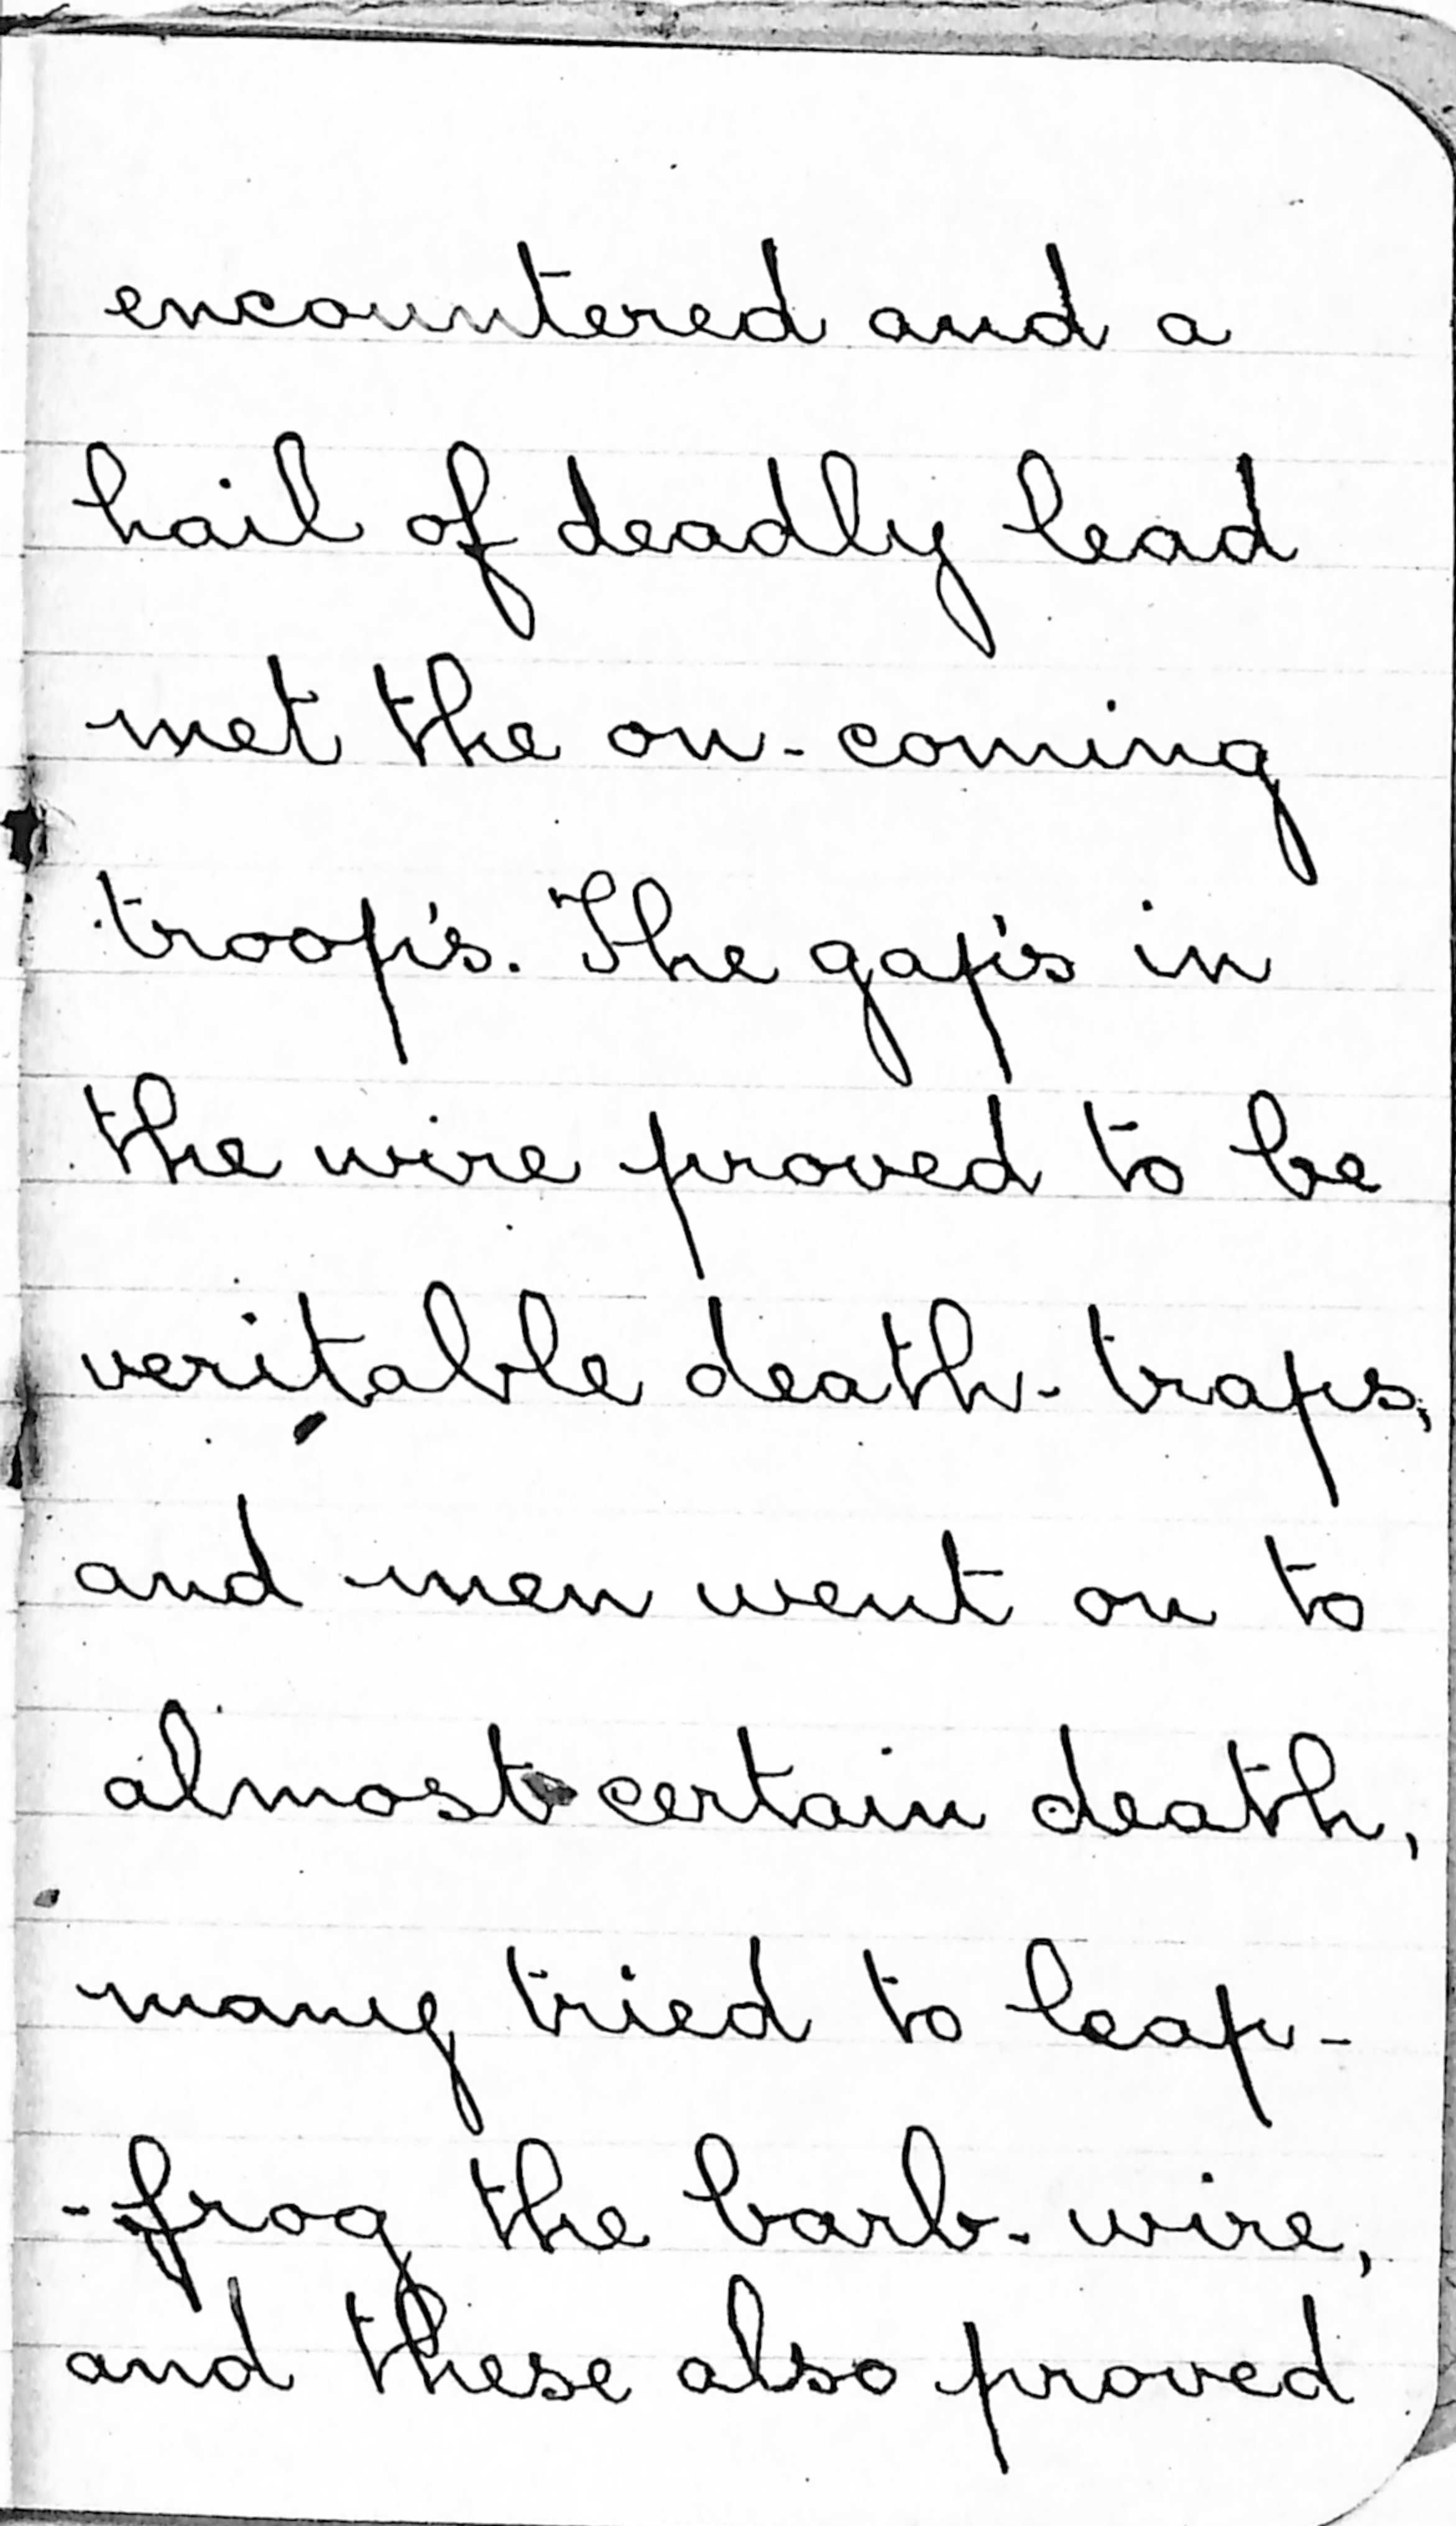 encountered and a
hail of deadly lead
met the on-coming
troop's. The gap's in
the wire proved to be
veritable death-traps,
and men went on to
almost certain death,
many tried to leap-
-frog the barb-wire,
and these also proved